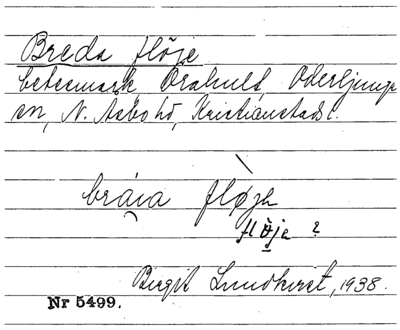 Breda flöje
betesmark, Örahult, Oderljunga
sn, N. Åsbo hd, Kristianstads l.
fløja
flöje ?
Birgit Lundkvist, 1938.
Nr 5499.